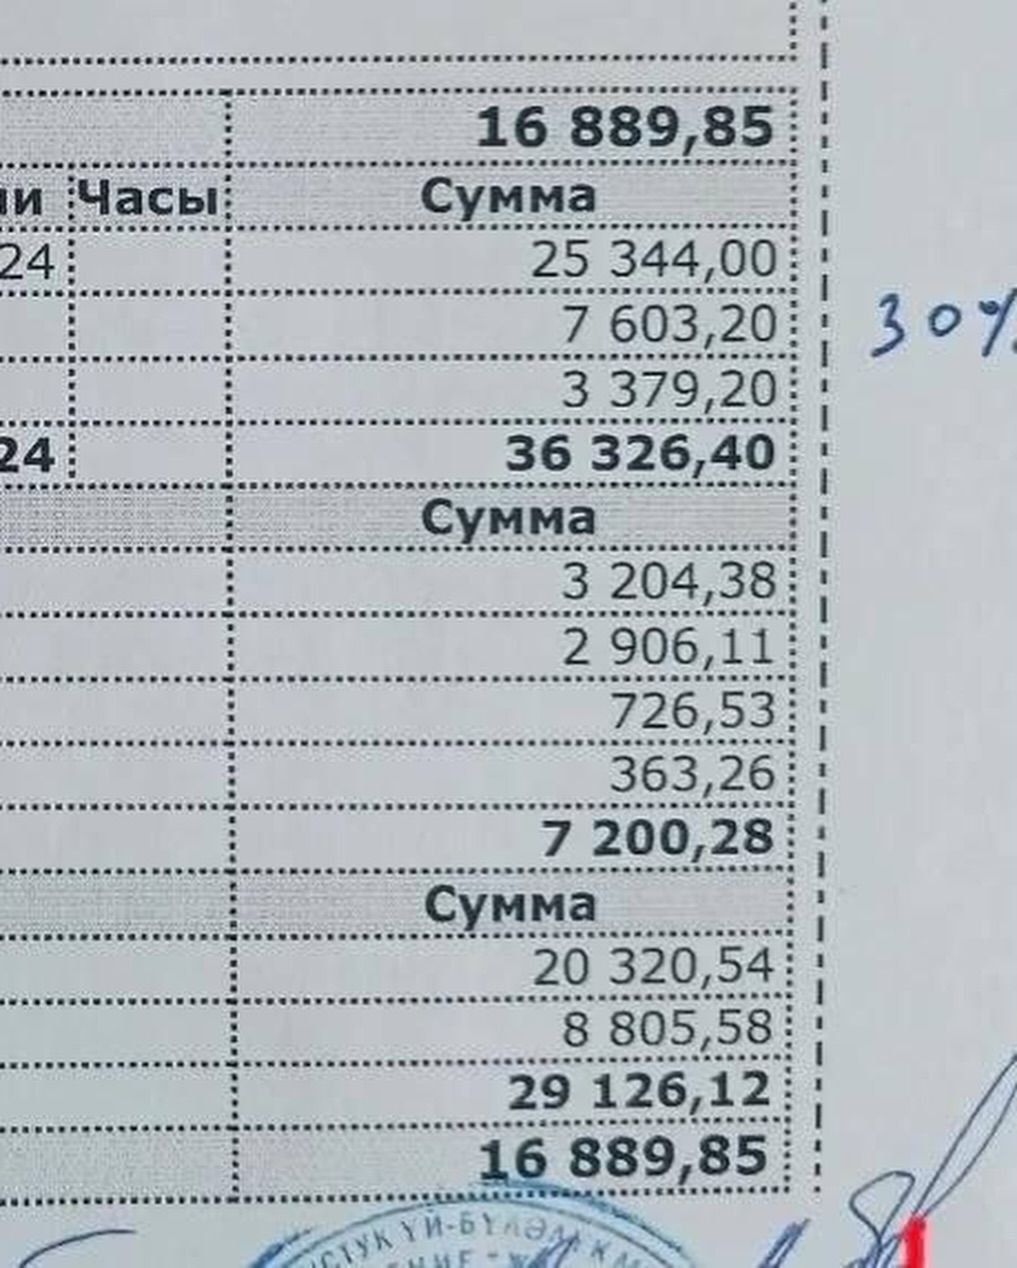 16 889,85
Часы Сумма
24 25 344,00
7 603,20 30%
3 379,20
24 36 326,40
Сумма
3 204,38
2 906,11
726,53
363,26
7 200,28
Сумма
20 320,54
8 805,58
29 126,12
16 889,85
ҮЙ-БҮЛӘЛӘК